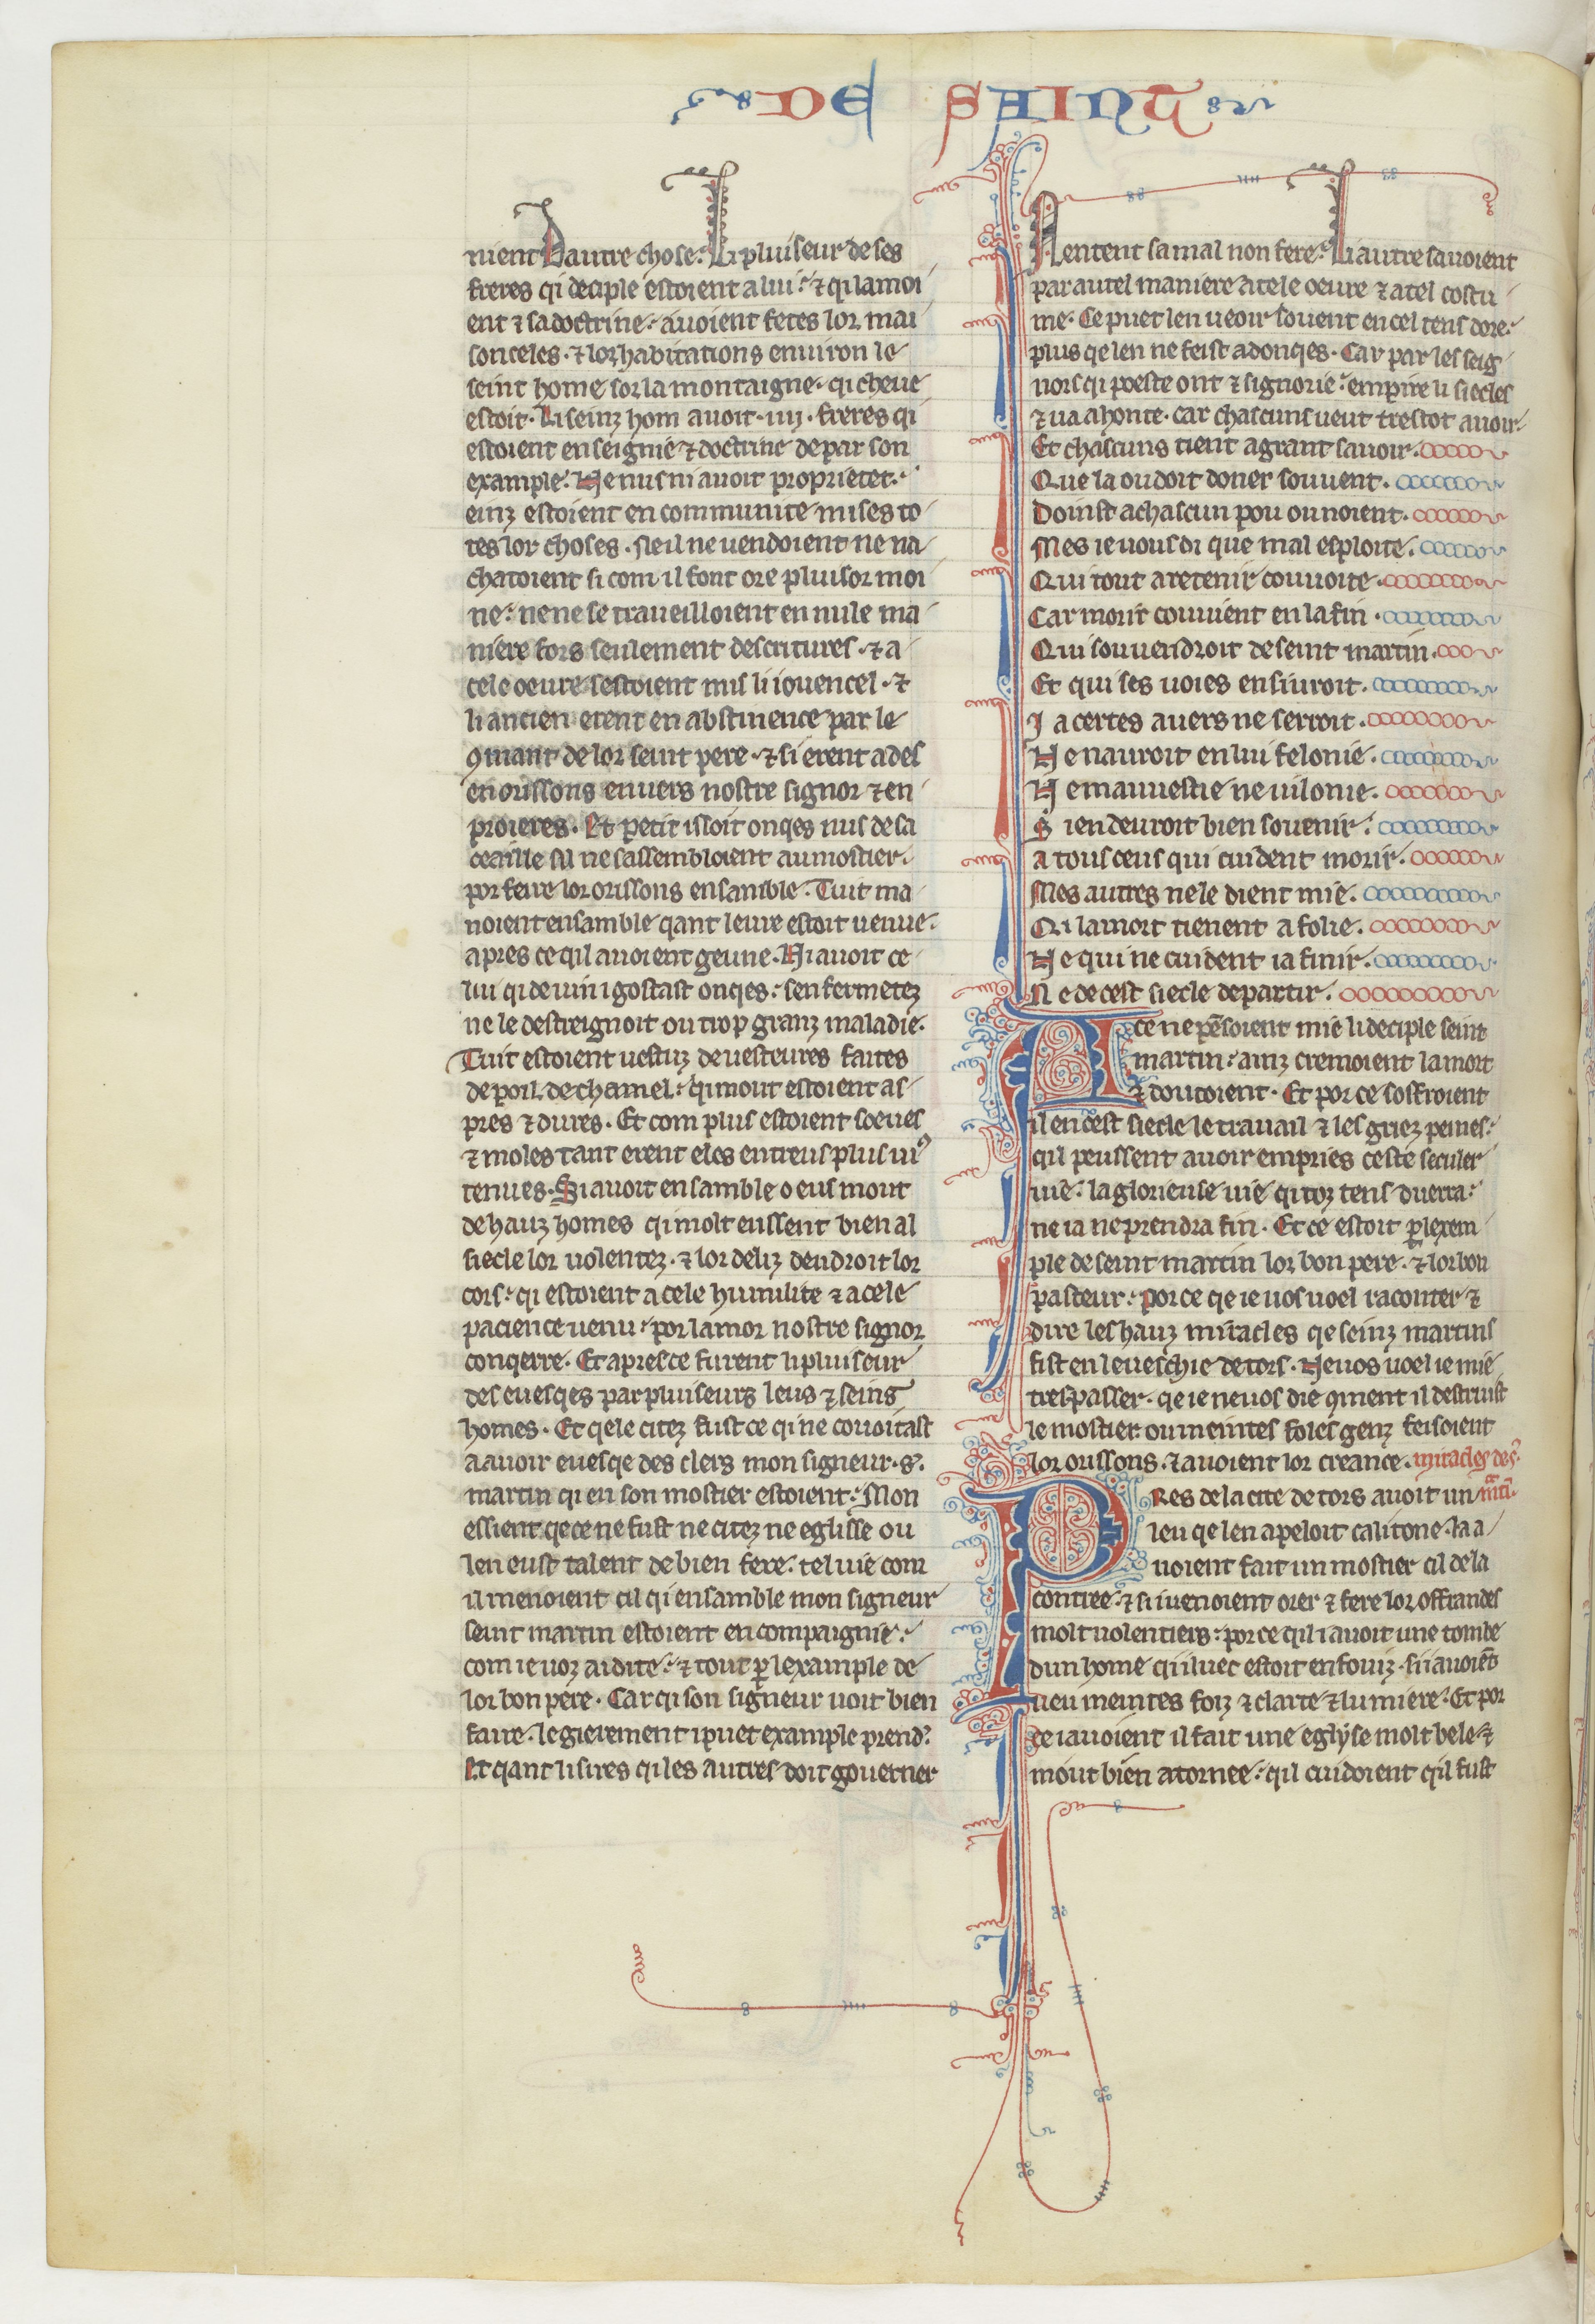 DE SAINT
nient Dautre chose. Li pluiseur de ses
freres qi deciple estoient a lui. ⁊ qi lamoi
ent ⁊ sa doctrine. avoient fetes lor mai
sonceles. ⁊ lor habitations environ le
seint home sor la montaigne. qi cheue
estoit. Li seinz hom avoit .iiij. freres qi
estoient enseignie ⁊ doctrine de par son
example. Ne nus ni avoit proprietet.
einz estoient en communite mises to
tes lor choses. Ne il ne vendoient ne na
chatoient si com il font ore pluisor moi
ne. ne ne se traveilloient en nule ma
niere fors seulement descritures. ⁊ a
cele oeure sestoient mis li iouencel. ⁊
li ancien erent en abstinence par le
9mant de lor seint pere. ⁊ si erent ades
en orissons envers nostre signor ⁊ en
proieres. Et petit issoit onqes nus de sa
ceaille sil ne sassembloient au mostier.
por feire lor orissons ensamble. Tuit ma
noient ensamble qant leure estoit venue.
apres ce qil avoient geune. Ni avoit ce
lui qi de vin i gostast onqes. senfermetez
ne le destreignoit ou trop granz maladie.
Tuit estoient vestuz de vesteures faites
de poil de chamel. qi mout estoient as
pres ⁊ dures. Et com plus estoient soeues
⁊ moles tant erent eles entreus plus vi9
tenues. Si avoit ensamble o eus mout
de hauz homes qi molt eussent bien al
siecle lor volentez. ⁊ lor deliz dendroit lor
cors. qi estoient a cele humilite ⁊ a cele
pacience venu. por lamor nostre signor
conqerre. Et apres ce furent li pluiseur
des evesqes par pluiseurs leus ⁊ seing
homes. Et qele citez fust ce qi ne covoitast
a avoir evesqe des clers mon signeur .s.
martin qi en son mostier estoient. Mon
essient qe ce ne fust ne citez ne eglisse ou
len eust talent de bien fere. tel vie com
il menoient cil qi ensamble mon signeur
seint martin estoient en compaignie.
com ie voz ai dite. ⁊ tout p lexample de
lor bon pere. Car qi son signeur voit bien
faire. legierement i puet example prend.
Et qant li sires qi les autres doit governer
Nentent sa mal non fere. Li autre savoient
par autel maniere a tele oeure ⁊ a tel costu
me. Ce puet len veoir souent en cel tens dore.
plus qe len ne feist adonqes. Car par les seig
nors qi poeste ont ⁊ signorie. empire li siecles
⁊ va a honte. car chascuns veut trestot avoir.
Et chascuns tient a grant savoir.
Que la ou doit doner souvent.
Doinst a chascun pou ou noient.
Mes ie vous di que mal esploite.
Qui tout a retenir couvoite.
Car morir couvient en la fin.
Qui souvendroit de seint martin.
Et qui ses voies ensivroit.
Ja certes avers ne serroit.
Ne nauroit en lui felonie.
Ne mauvestie ne vilonie.
Sien devroit bien sovenir.
a tous ceus qui cuident morir.
Mes autres ne le dient mie.
Qi la mort tienent a folie.
Ne qui ne cuident ia finir.
Ne de cest siecle departir.
A ce ne pensoient mie li deciple seint
martin. ainz cremoient la mort
⁊ doutoient. Et por ce soffroient
il en cest siecle le travail ⁊ les griez peines.
qil peussent avoir empries ceste seculer
vie. la glorieuse vie qi toz tens durra.
ne ia ne prendra fin. Et ce estoit p lexem
ple de seint martin lor bon pere. ⁊ lor bon
pasteur. por ce qe ie vos voel raconter ⁊
dire les hauz miracles qe seinz martins
fist en leveschie de tors. Ne vos voel ie mie
trespasser. qe ie ne vos die 9ment il destruist
le mostier ou meintes foles genz feisoient
lor orissons. ⁊ avoient lor creance. miracles de s.
Pres de la cite de tors avoit un mti.
leu qe len apeloit calitone. la a
voient fait un mostier cil de la
contree. ⁊ si i venoient orer ⁊ fere lor offrandes
molt volentiers. por ce qil i avoit une tombe
dun home qi iluec estoit enfouiz. si i avoiet
veu meintes foiz ⁊ clarte ⁊ lumiere. Et por
ce i avoient il fait une eglyse molt bele. ⁊
mout bien atornee. qil cuidoient qil fust